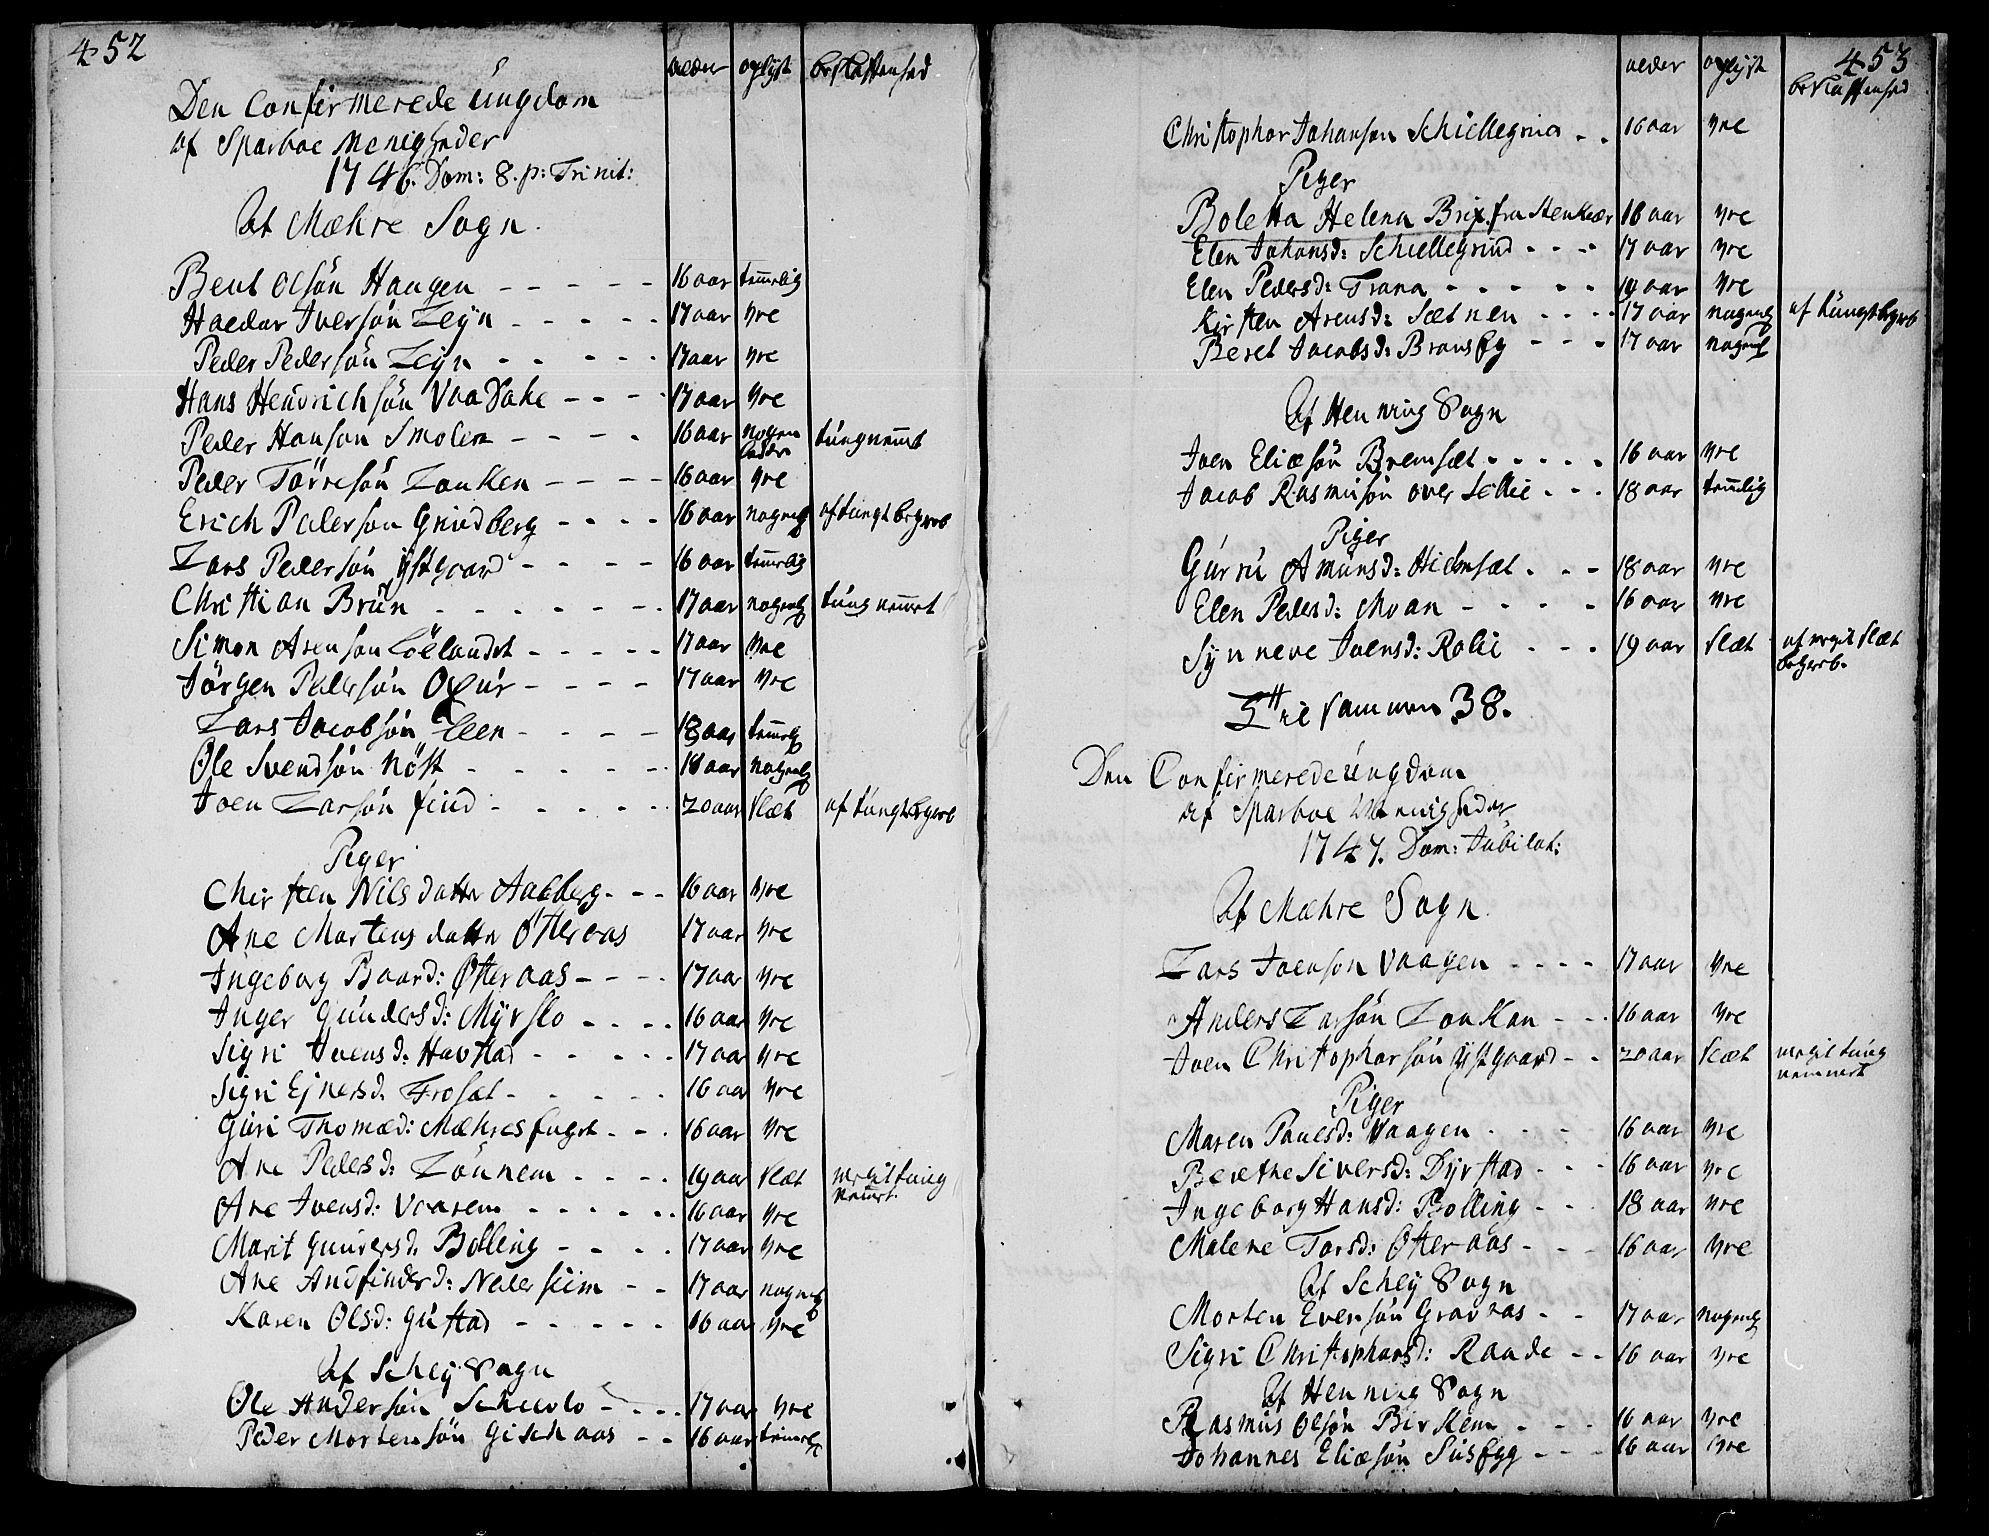 452
alder oplyst beskaffenhed
Den Confirmerede ungdom
af Sparboe Menigheder
1746. Dom: 8. p: Trinit:
Af Mæhre Sogn.
Bent Olsön Haugen - - - - - 16 aar temelig
Iversön Lejn - - - - - 17 aar Yre
Peder Pedersön Lejn - - - - - 17 aar Yre
Hans Hendrichsön Vaadahe - - - - 17 aar Yre
Peder Hanson Smolen - - - - 16 aar nogen leder tungnemt
Peder Törresön Lonken - - - - 16 aar Yre
Erich Pederson Grindberg - - - - 16 aar nogenl af tungt begreb
Lars Pedersön ystgaard - - - - 16 aar temelig
Christian Brun - - - - - - 17 aar nogenl tung nemet
Simon Arenson Löelandet - - - - - 17 aar Yre
Jörgen Pedersön Oxur - - - - 17 aar Yre
Lars Jacobsön Leen - - - - 18 aar temel
Ole Svendsön Nöst - - - - - 18 aar nogenl
Joen Larsön find - - - - - 20 aar slæt af tungt begreb
Piger
Chirsten Nilsdatter Aalberg - - - 16 aar Yre
Ane Mortensdatter Østeraas 17 aar Yre
Ingeborg Baard: Østeraas - - - - 17 aar Yre
Inger Gundersd: Myrslo - - - - 16 aar Yre
Sigri Ivensd: Havstad - - - - - 17 aar Yre
Sigri Ejnersd. Frosæt - - - - - 16 aar Yre
Guri Thomæd: Mæhresfugst - - - 16 aar Yre
Ane Pedesd: Lönnem - - - - 19 aar slæt megit tung nemet.
Ane Ivensd: Vaarem - - - - - - 16 aar Yre
Marit Gunnersd. Bolling - - - - 17 aar Yre
Ane Andfindersd: Neder - - 17 aar nogenl
Karen Olsd: Gustad - - - - - 16 aar Yre
Af Schej Sogn
Ole Andersön Schievlo - - - - 17 aar Yre
Peder Mortensön Gischaas - - 16 aar temel
453
alder oplyst beskaffenhed
Christopher Johanson Schiellegrind - - 16 aar Yre
Piger
Boletta Helena Brix fra Stenkiær 16 aar Yre
Elen Johansd: Schiellegrind - - - 17 aar Yre
Elen Pedersd: Trana - - - - - 19 aar Yre
Kirsten Arensd: Sætnen - - - - 17 aar nogenl af tungt begreb
Beret Jacobsd: Bransfly - - - 17 aar nogenl
Af Henning Sogn
Joen Eliæsön Bremsæt - - - - - 16 aar Yre
Jacob Rasmusön over Lellie - - - 18 aar temelig
Piger
Gurru Amunsd: Hielmsæt - - - 18 aar Yre
Elen Pedesd: Moan - - - - 16 aar Yre
Synneve Joensd: Rolie - - - 19 aar slæt af megit slæt begreb.
sammen 38.
Den Confirmerede ungdom
af Sparboe Menigheder
1747. Dom: Jubilat:
Af Mæhre Sogn.
Lars Joenson Vaagen - - - - 17 aar Yre
Anders Larsön Lonkan - - - 16 aar Yre
Joen Christophersön ystgaard - - 20 aar slæt megit tung nemmet
Piger
Maren Paulsd: Vaagen - - - - 16 aar Yre
Berethe Siversd: Dyrstad - - - 16 aar Yre
Ingeborg Hansd: Bolling - - - 18 aar Yre
Malene Torsd: Østeraas - - - 16 aar Yre
Af Schej Sogn
Morten Evensön Gravaas - - 17 aar nogenl
Sigri Christophersd: Raade - - 16 aar Yre
Af Henning Sogn
Rasmus Olsön Birkem - - - 16 aar Yre
Johannes Eliæsön Susegg - - - 16 aar Yre